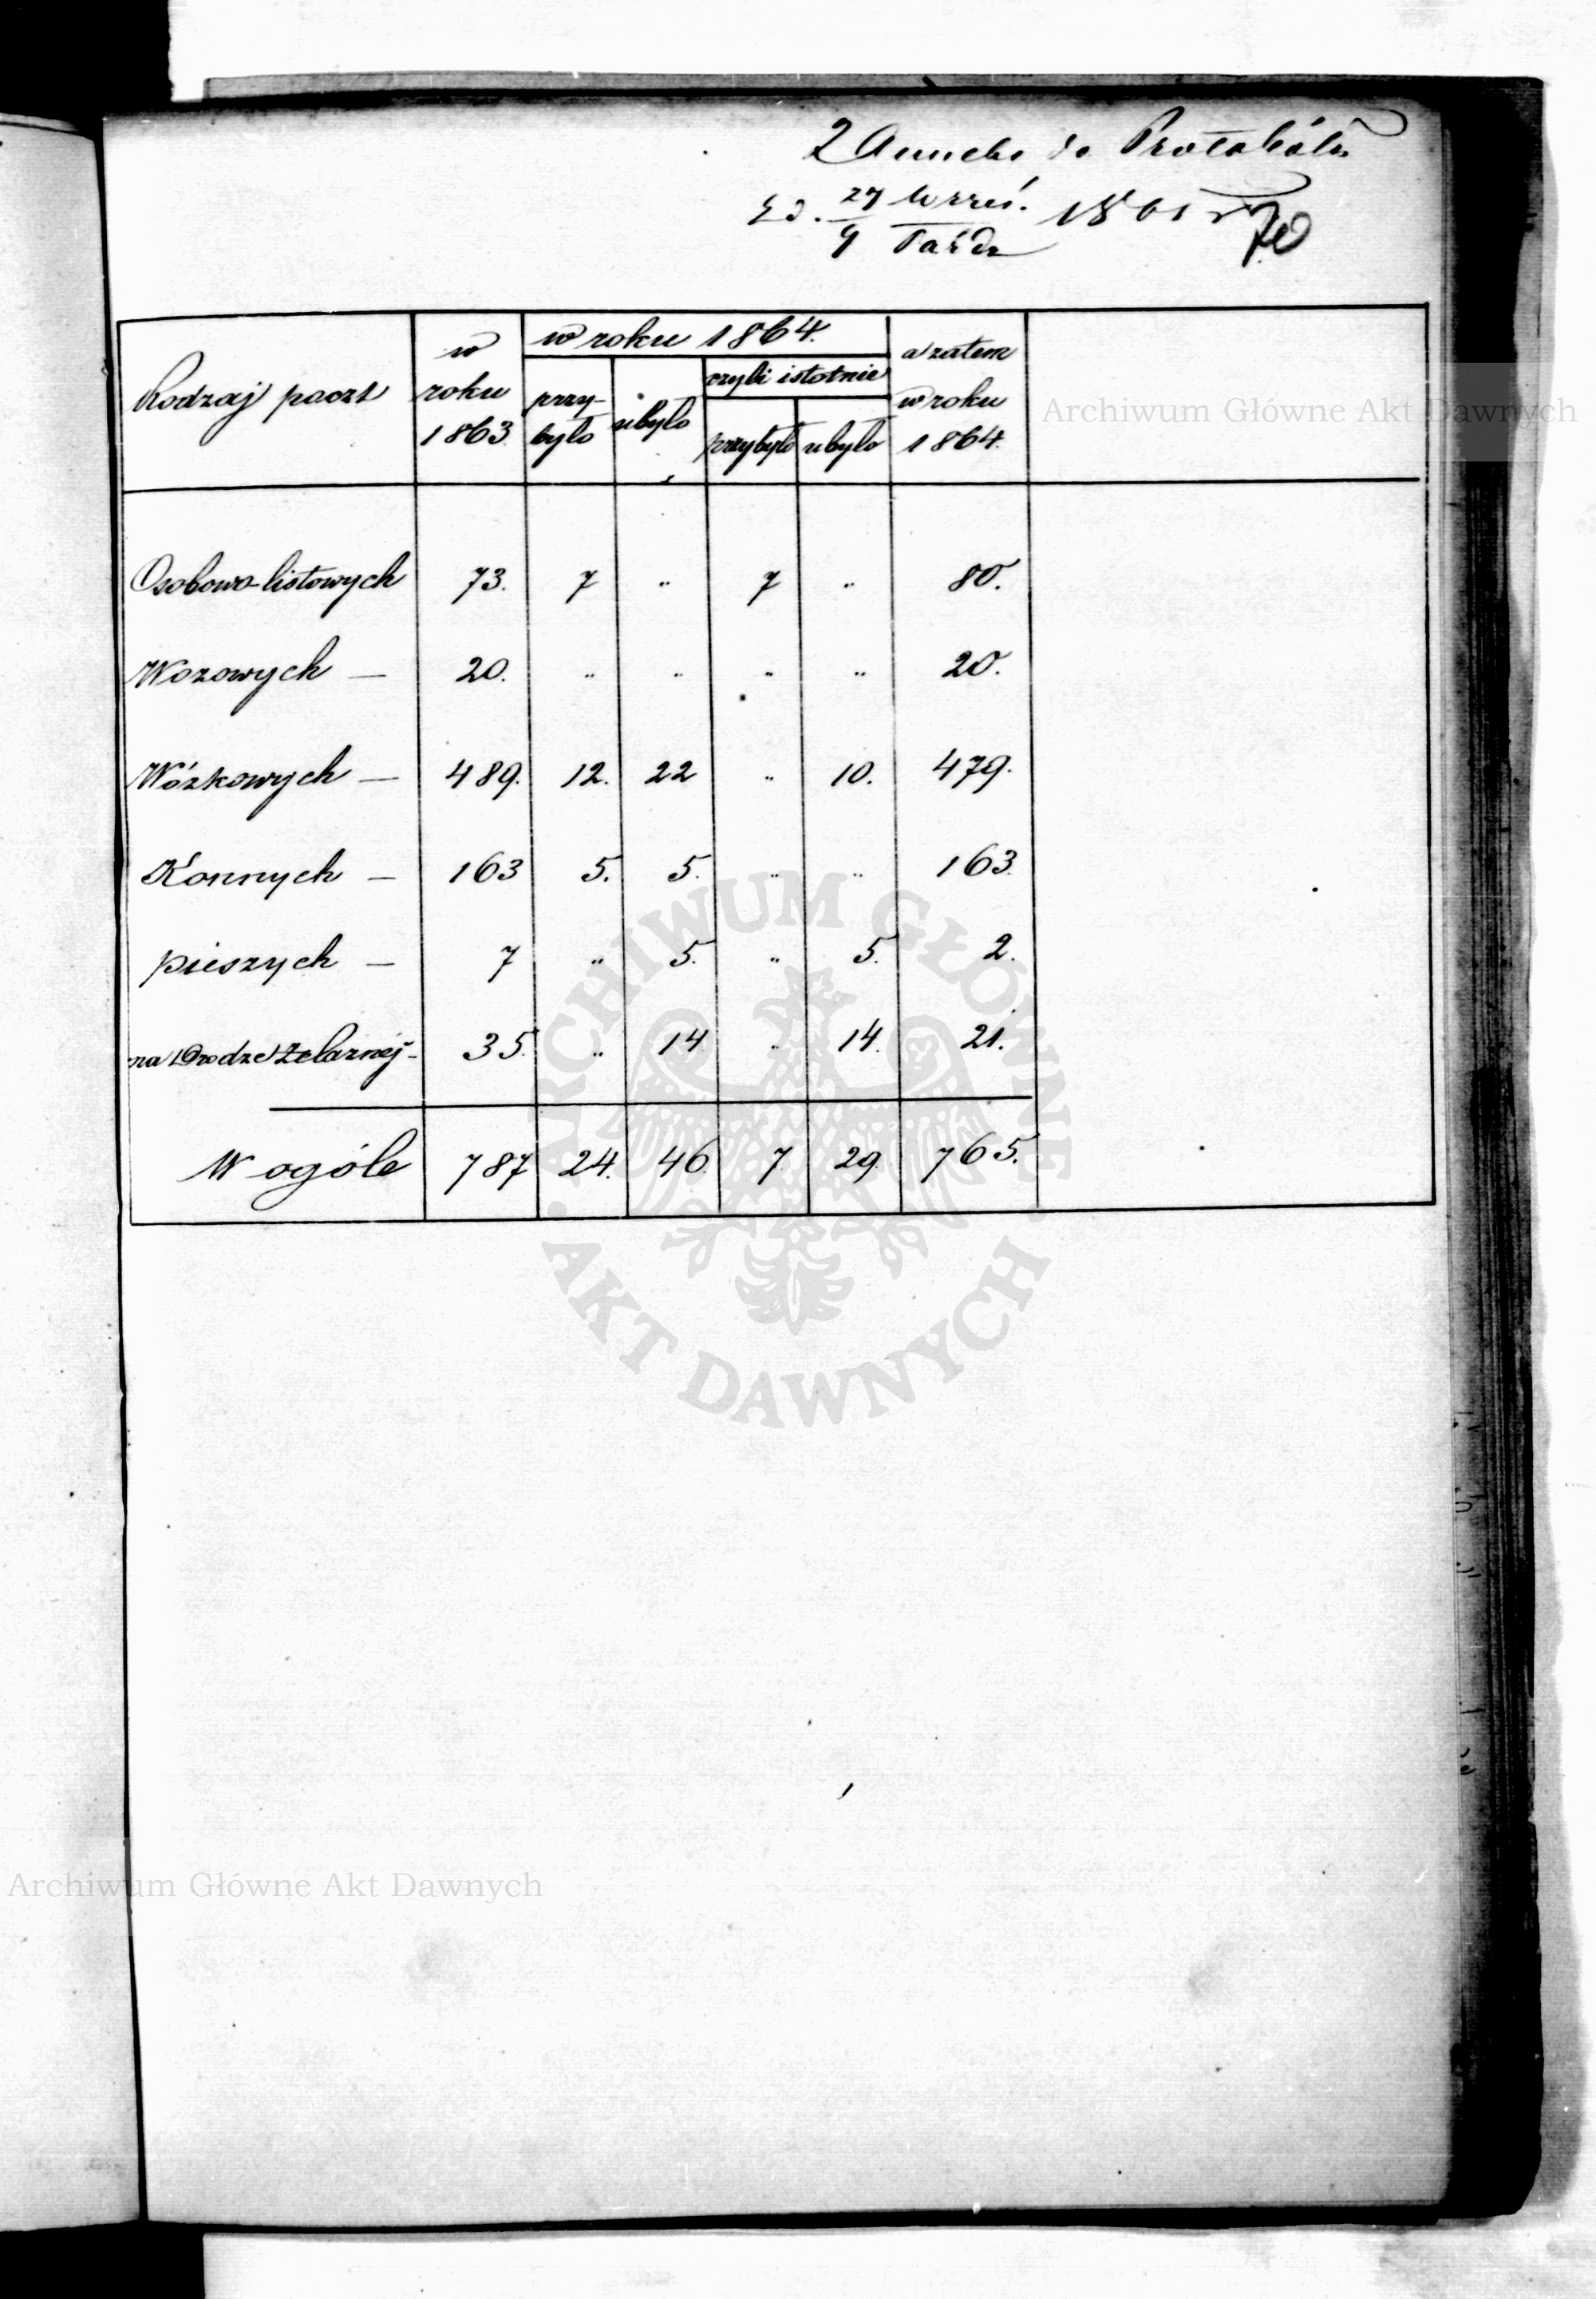 2 Annebo do Protokółu
z d. 27 Wrześ. 186
9 Paźdz
70
Rodzaj poczt
w roku 1863.
w roku 1864.
przybyło
ubyło
czyli istotnie
przybyło ubyło
a zatem w roku 1864.
Archiwum Główne Akt Dawnych
Osobowo-listowych 73. 7 " 7 " 80.
Wozowych — 20. " " " " 20.
Wózkowych — 489. 12. 22 " 10. 479.
Konnych — 163 5. 5. " " 163.
pieszych — 7 " 5. " 5. 2.
na Drodze Żelaznej - 35. " 14 " 14. 21.
W ogóle 787 24. 46. 7 29. 765.
ARCHIWUM GŁÓWNE
AKT DAWNYCH
Archiwum Główne Akt Dawnych